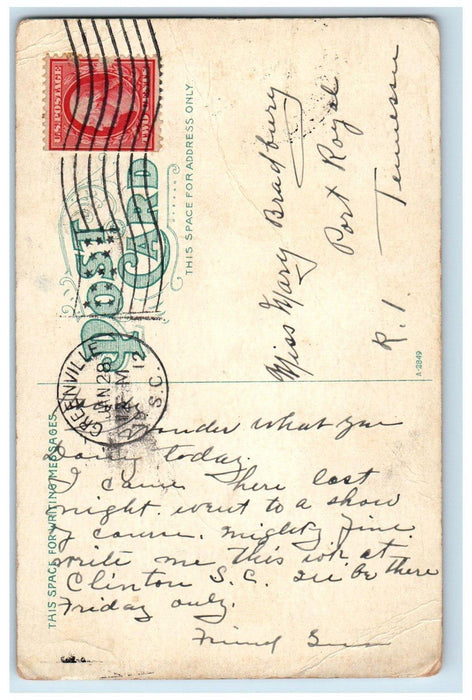 U.S. POSTAGE
TWO CENTS
POST CARD
THIS SPACE FOR ADDRESS ONLY
GREENVILLE S.C.
JAN 28
12 M
1912
Miss Mary Bradbury
Port Royal
R. 1. Tennessee
A-2849
THIS SPACE FOR WRITING MESSAGES
wonder what you
today.
I came here last
night. went to a show
of course. mighty fine.
write me this wk at
Clinton S.C. I'll be there
Friday only.
Friend